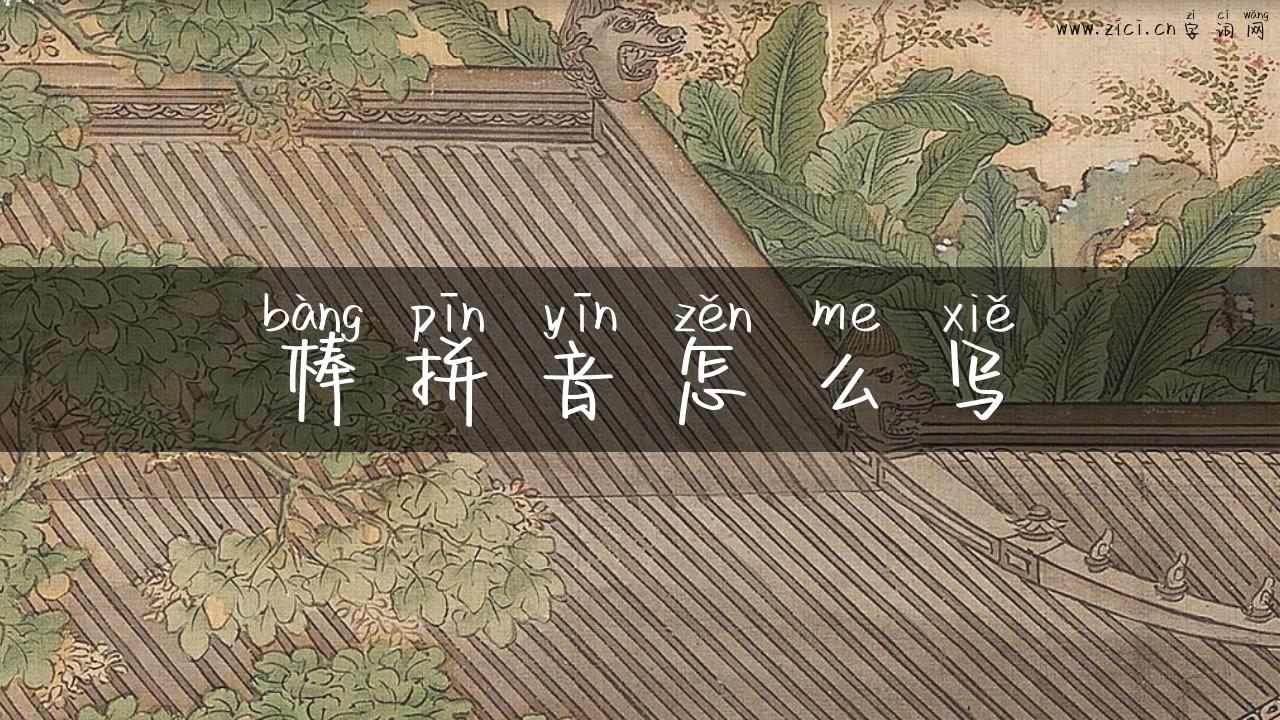 zì cí wǎng
www.zici.cn 字词网
bàng pīn yīn zěn me xiě
棒拼音怎么写